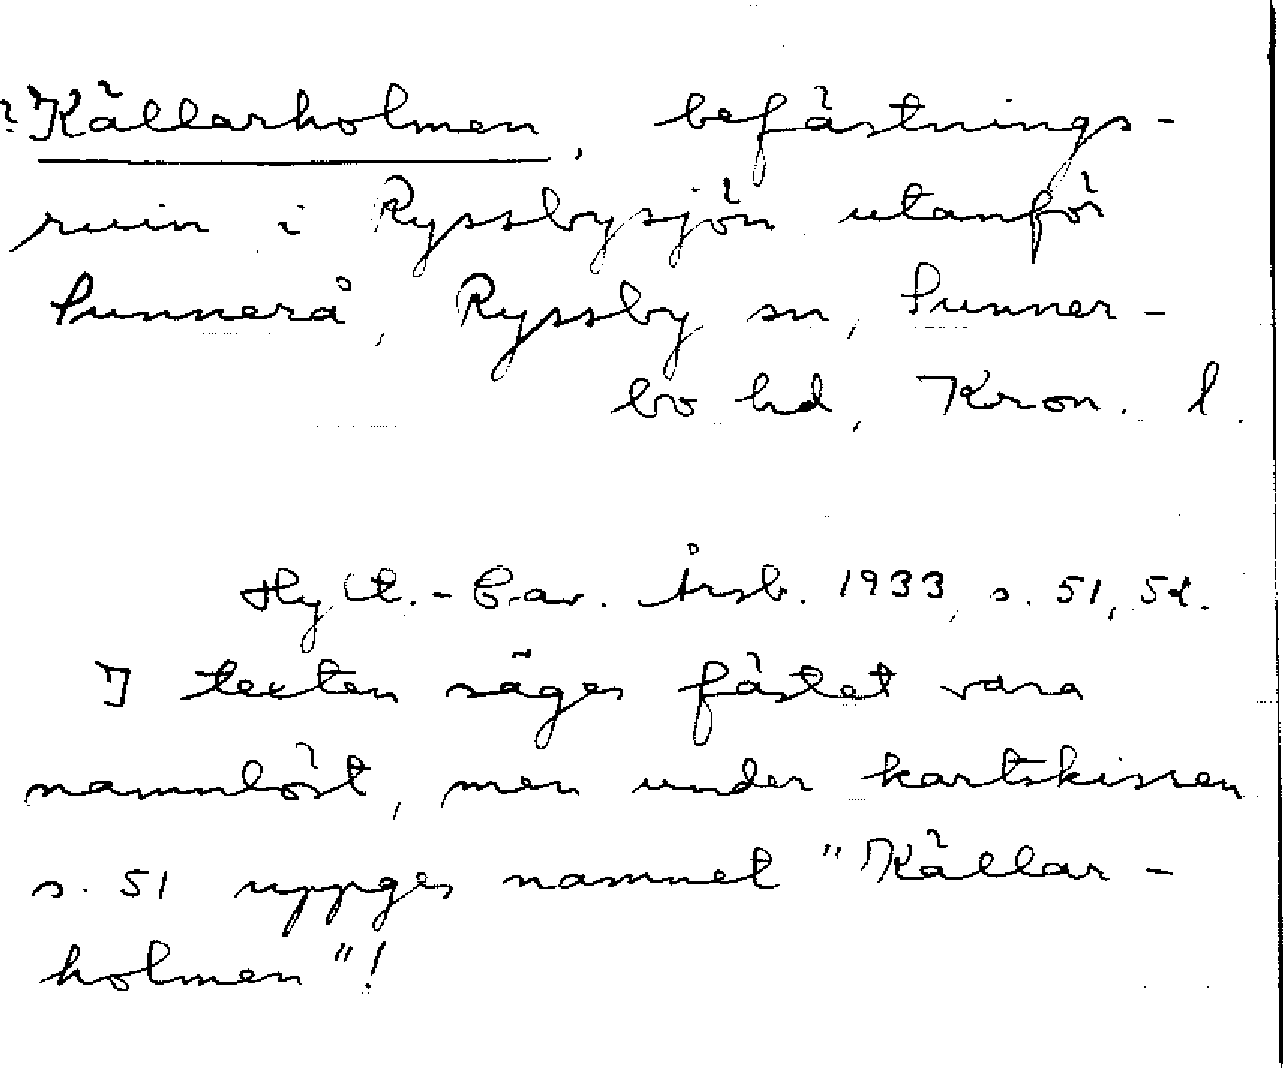 ? Källarholmen, befästnings-
ruin i Ryssbysjön utanför
Sunnerå, Ryssby sn, Sunner-
bo hd, Kron. l.
Hylt.-Cav. Årsb. 1933, s. 51, 52.
I texten säges fästet vara
namnlöst, men under kartskissen
s. 51 uppges namnet "Källar-
holmen"!